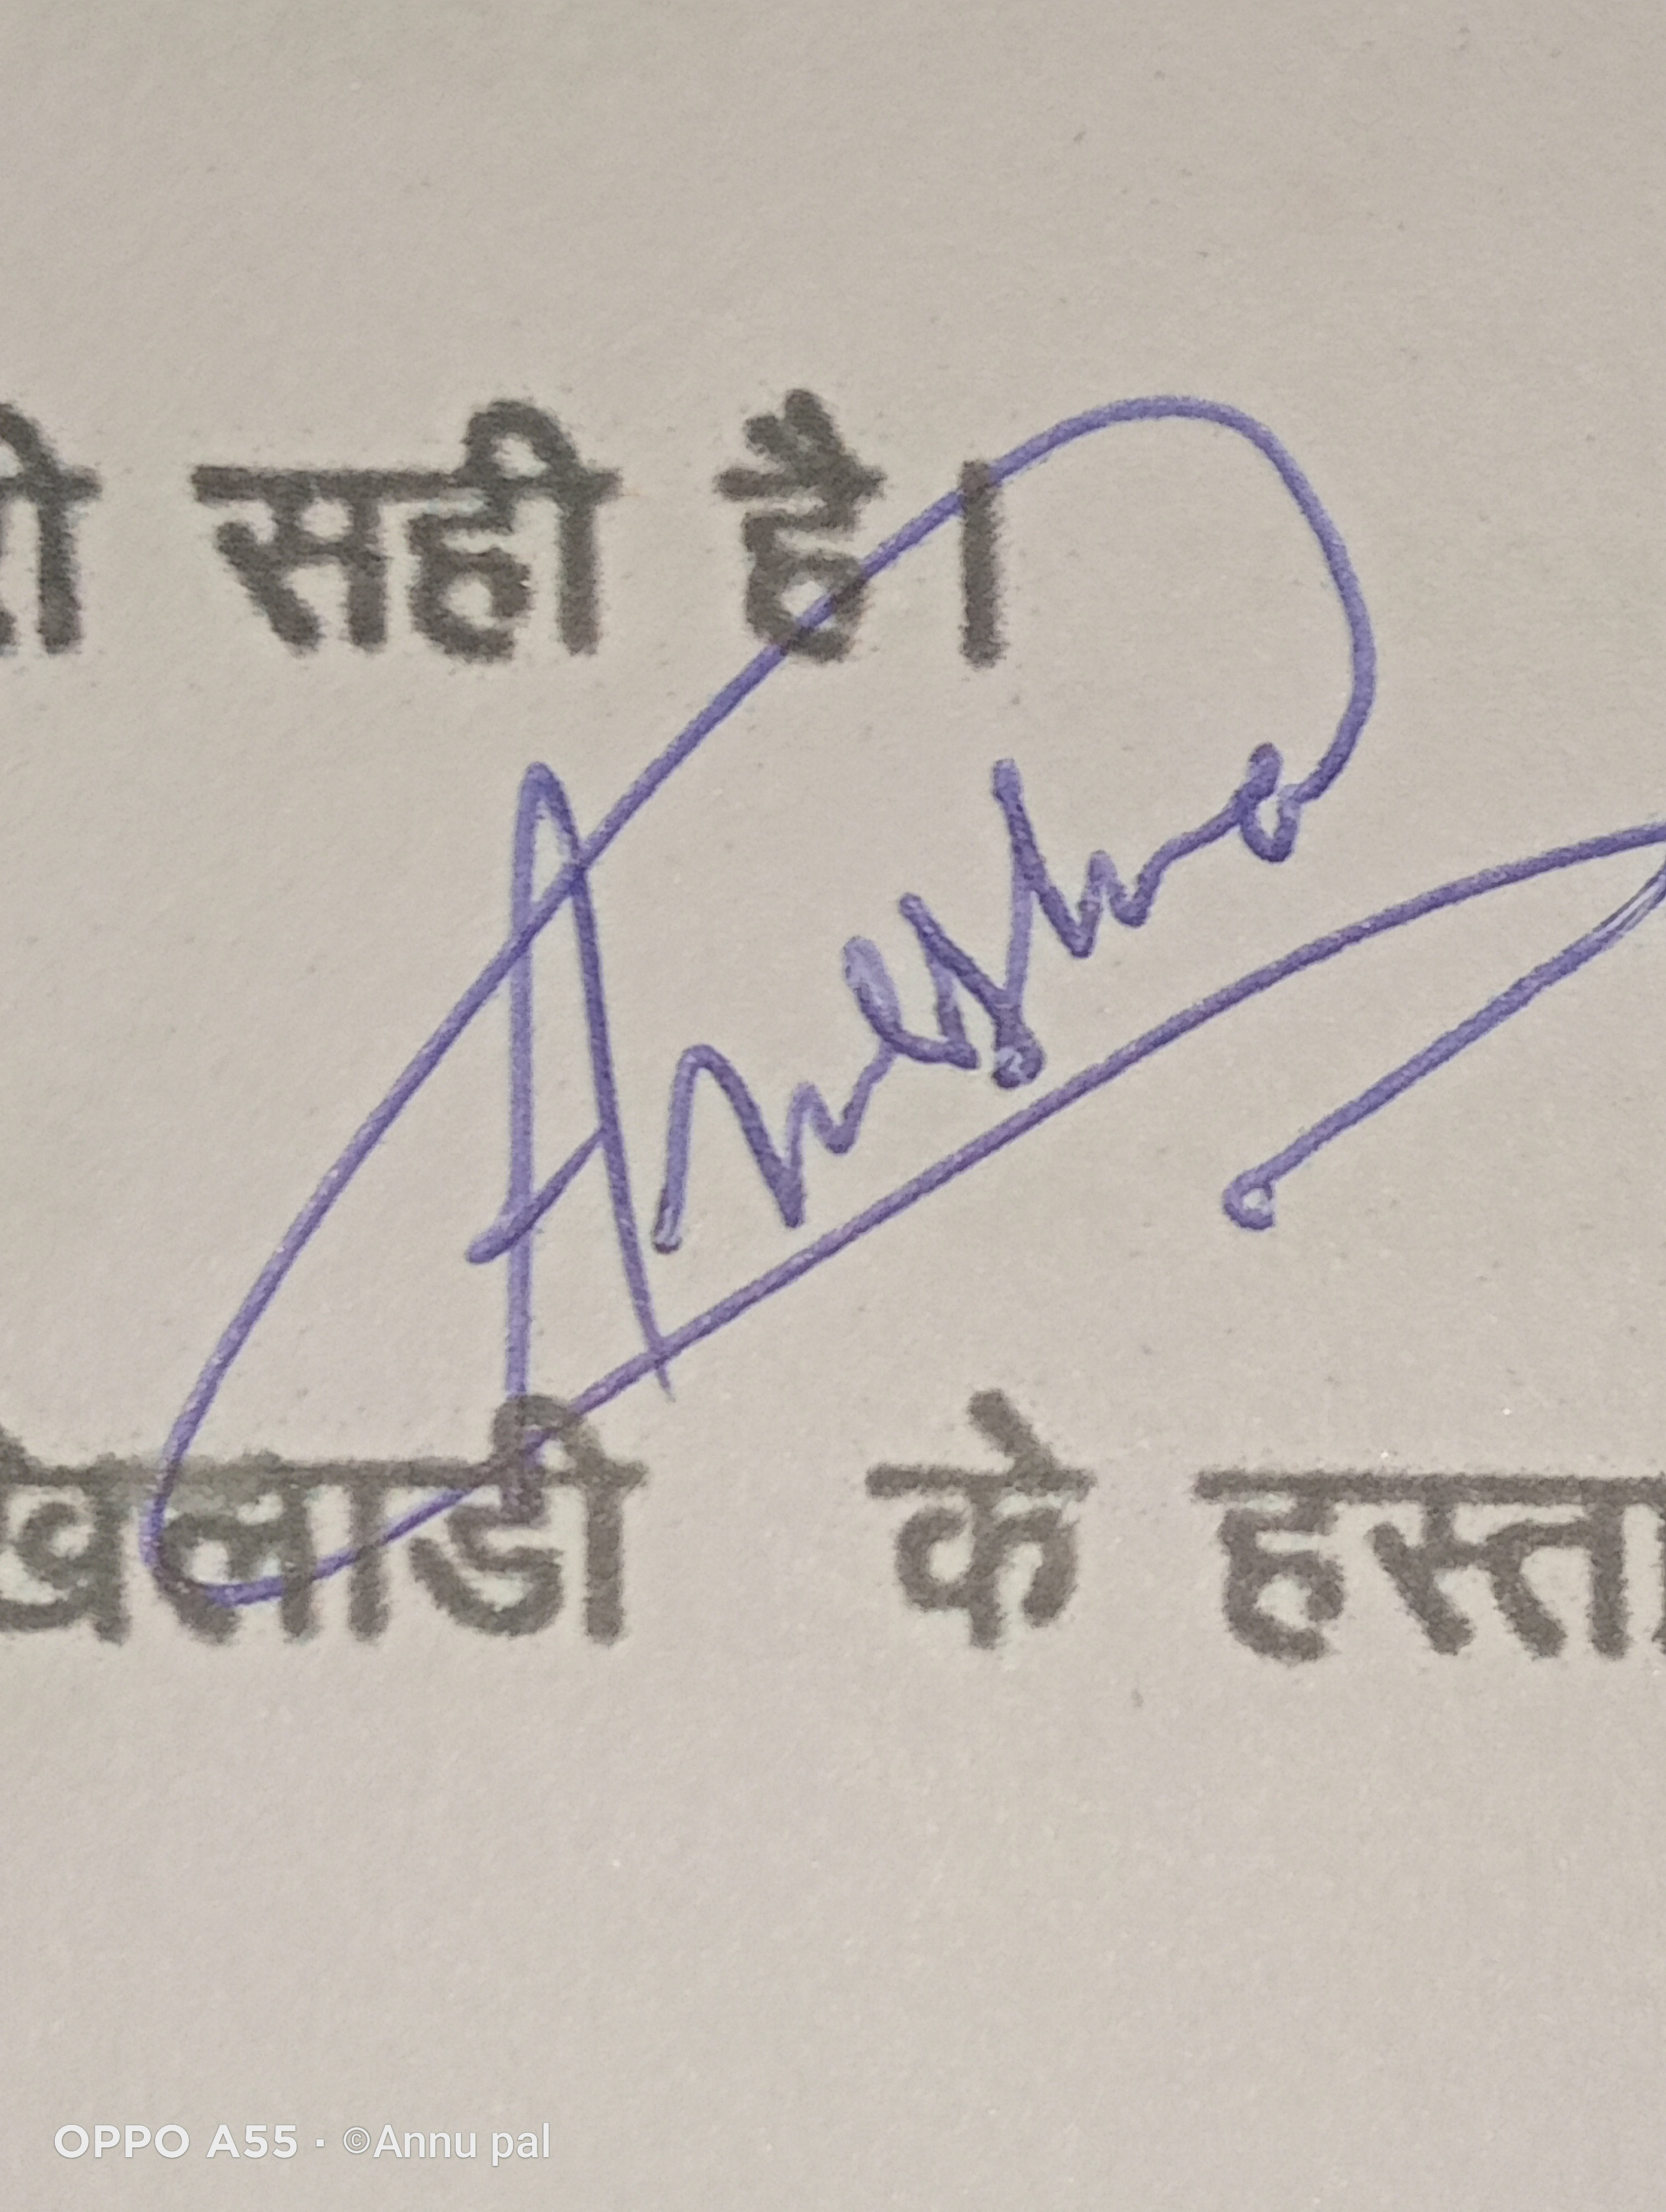 सही है।
Anesha
खिलाडी के हस्ता
OPPO A55 · ©Annu pal